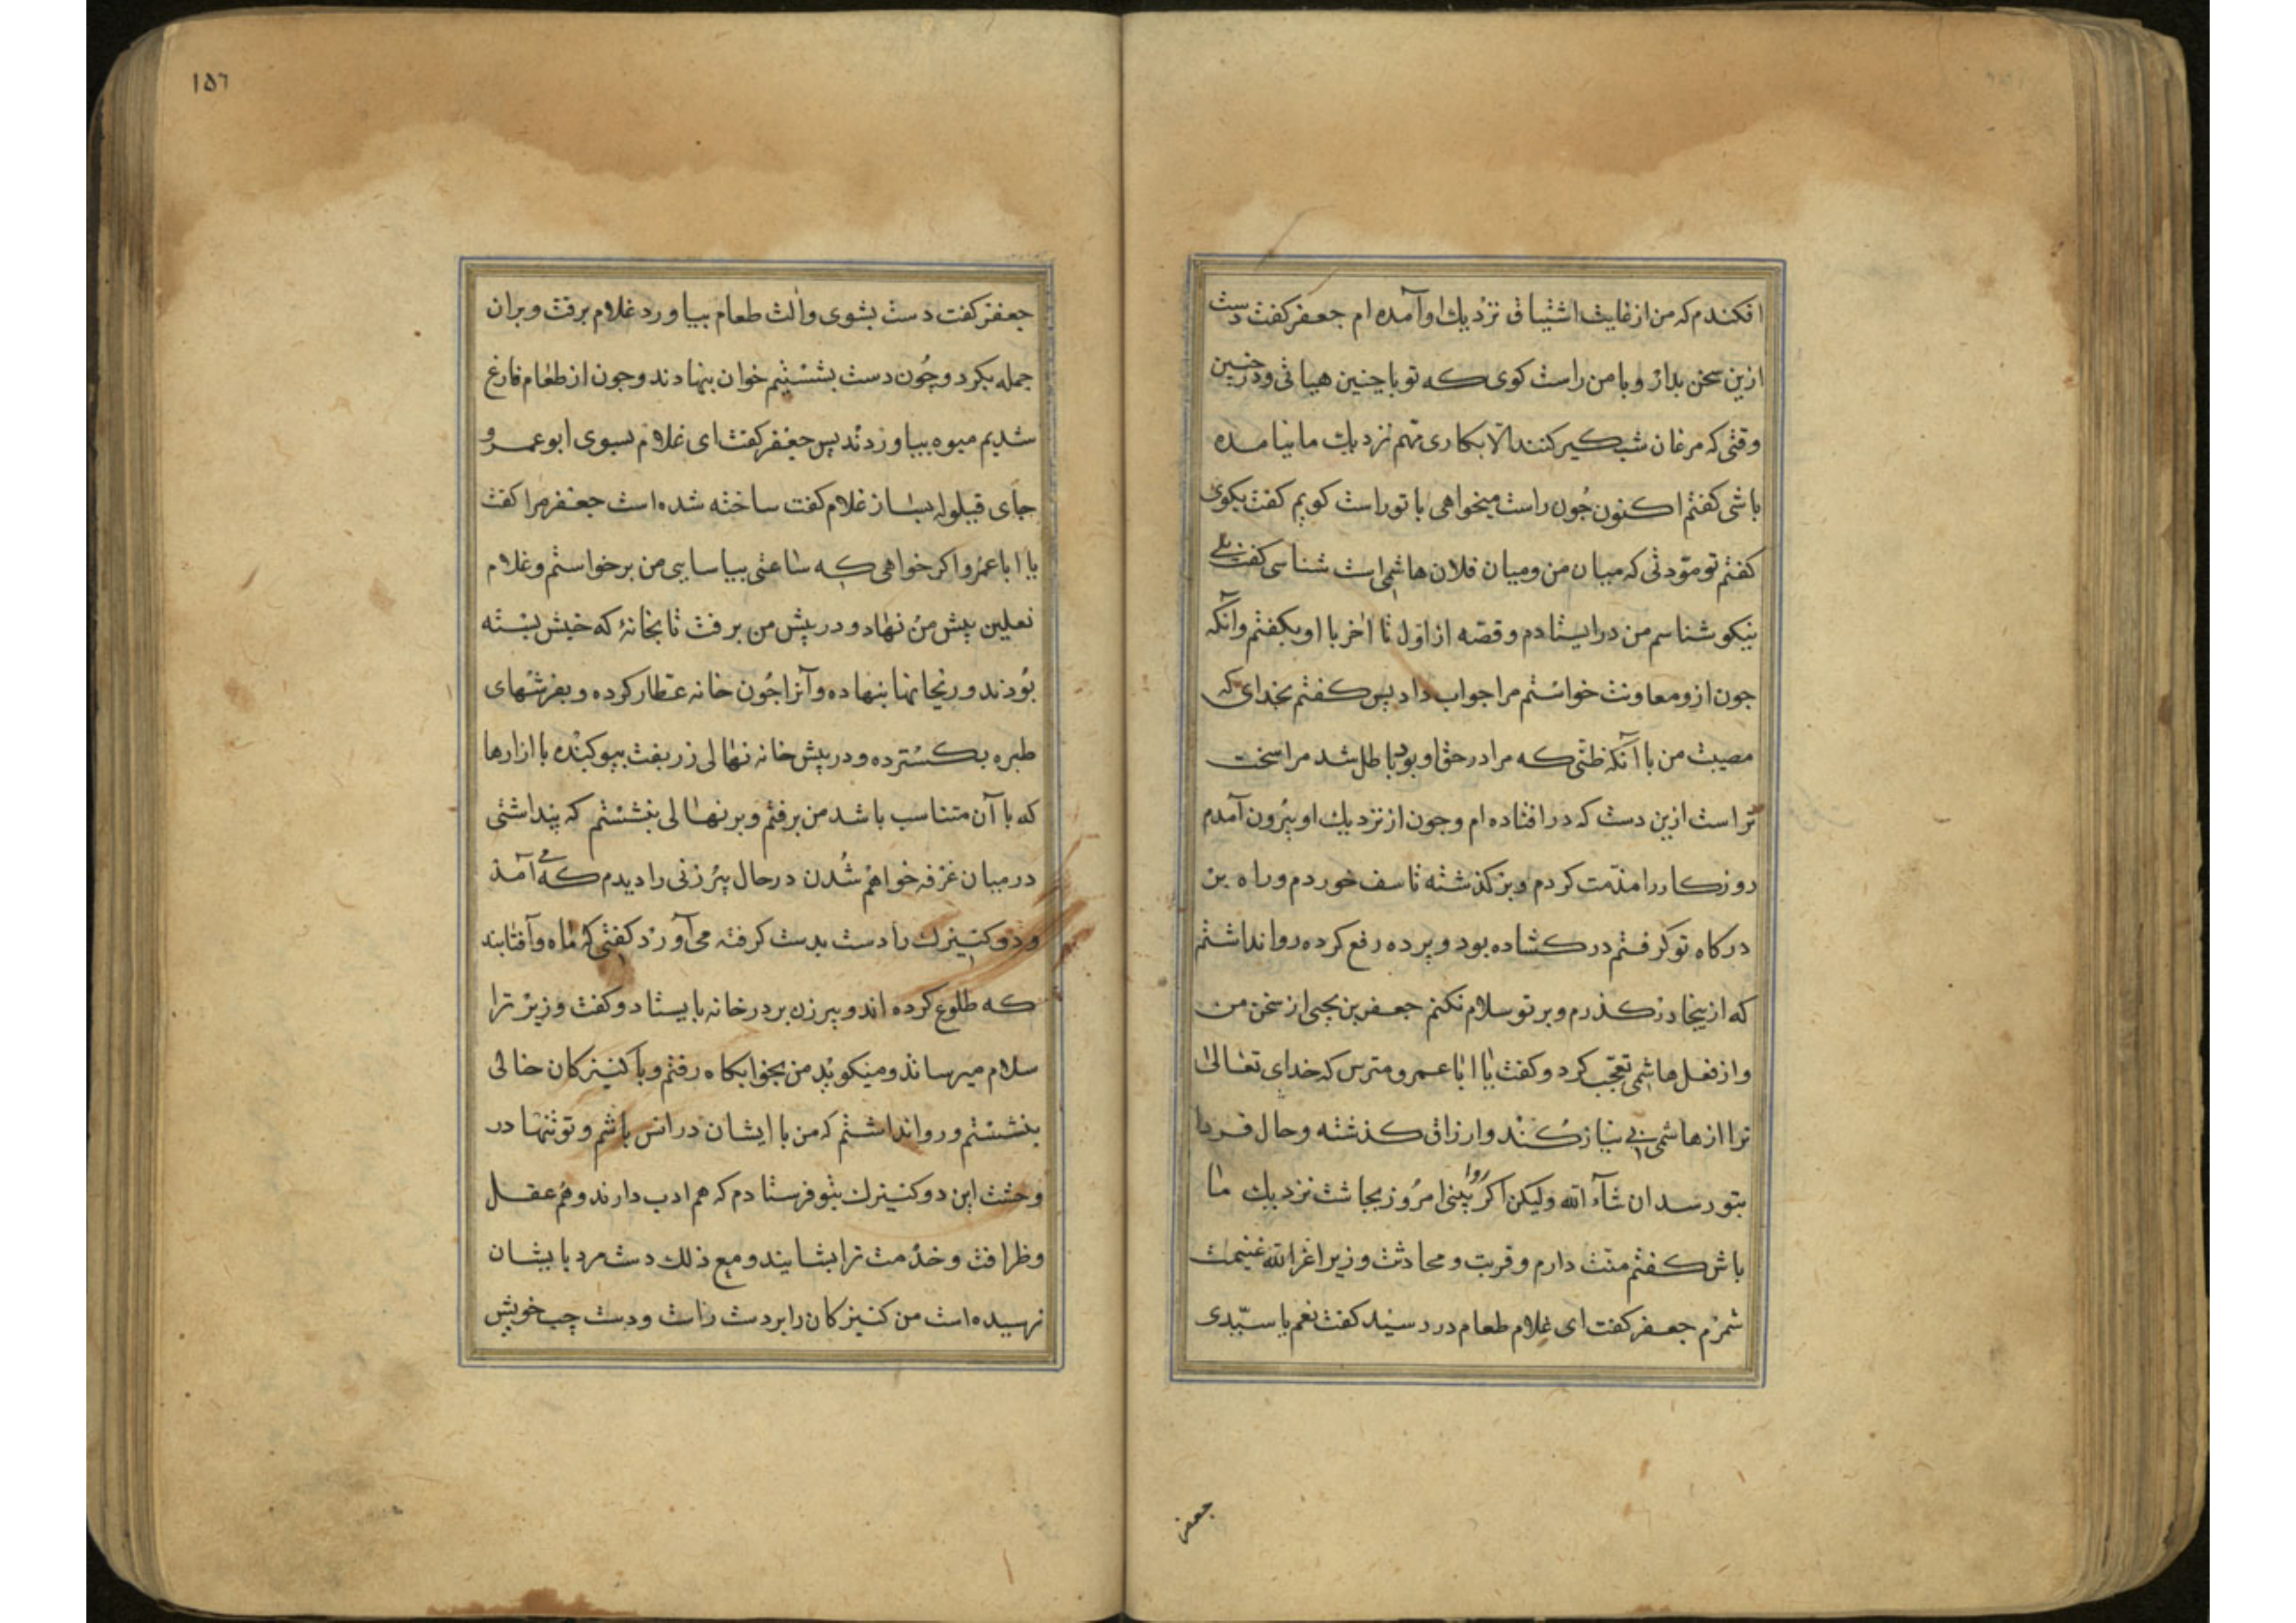 افکندم که من از غایت اشتیاق نزدیك او آمده ام جعفر کفت دست
ازین سخن بدار و با من راست کوی که تو با چنین هیأتی و در چنین
وقتی که مرغان شبکیر کنند الا بکاری مهم نزدیك ما نیامده
باشی کفتم اکنون چون راست میخواهی با تو راست کویم کفت بکوی
کفتم تو مودتی که میان من و میان فلان هاشمی است شناسی کفت بلی
نیکو شناسم من در ایستادم و قصه از اول تا آخر با او بکفتم و آنکه
جون ازو معاونت خواستم مرا جواب داد پس کفتم بخدای که
مصیبت من با آنکه ظنی که مرا در حق او بود باطل شد مرا سخت
تر است ازین دست که در افتاده ام وجون از نزدیك او بیرون آمدم
روزکار را مذمت کردم و بر کذشته تاسف خوردم و راه بر
درکاه تو کرفتم در کشاده بود و پرده رفع کرده روا نداشتم
که از ینجا در کذرم و بر تو سلام نکنم جعفر بن یحیی از سخن من
و از فعل هاشمی تعجب کرد و کفت یا ابا عمرو مترس که خدای تعالی
ترا از هاشمی بی نیاز کند و ارزاق کذشته و حال فردا
بتو رسد ان شاء الله ولیکن اکر روا بینی امروز بجاشت نزدیك ما
باش کفتم منت دارم و قربت و محادثت وزیر اعز الله غنیمت
شمرم جعفر کفت ای غلام طعام در رسید کفت نعم یا سیدی
جعفر
١٥٦
جعفر کفت دست بشوی و آلت طعام بیاورد غلام برفت و بران
جمله بکرد و چون دست بشستیم خوان بنهادند وجون از طعام فارغ
شدیم میوه بیاوردند پس جعفر کفت ای غلام بسوی ابو عمرو
جای قیلوله بساز غلام کفت ساخته شده است جعفر مرا کفت
یا ابا عمرو اکر خواهی که ساعتی بیاسایی من برخواستم و غلام
نعلین پیش من نهاد و در پیش من برفت تا بخانۀ که خیش بسته
بودند و ریحانها بنهاده و آنرا چون خانه عطار کرده و بفرشهای
طبره بکسترده و در پیش خانه نهالی زربفت بیوکنده با ازارها
که با آن متناسب باشد من برفتم و بر نهالی بنشستم که پنداشتی
در میان غرفه خواهم شدن در حال پیرزنی را دیدم که می آمد
و دو کنیزك را دست بدست کرفته می آورد کفتی که ماه و آفتابند
که طلوع کرده اند و پیرزن بر در خانه بایستاد و کفت وزیر ترا
سلام میرساند و میکوید من بخوابکاه رفتم و با کنیزکان خالی
بنشستم و روا نداشتم که من با ایشان در انس باشم و تو تنها در
وحشت این دو کنیزك بتو فرستادم که هم ادب دارند و هم عقل
و ظرافت و خدمت ترا بشایند و مع ذلك دست مرد بایشان
نرسیده است من کنیزکان را بر دست راست و دست چپ خویش